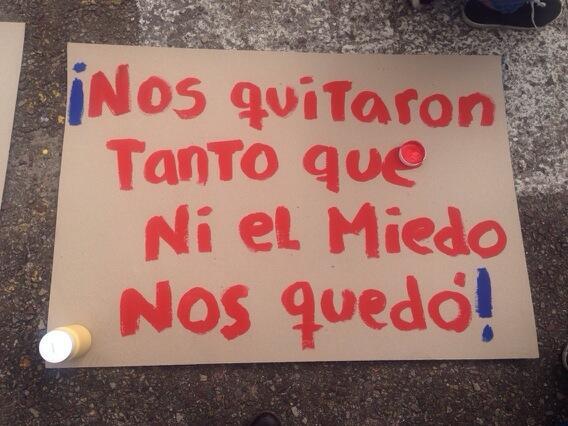 ¡Nos quitaron
Tanto que
Ni el Miedo
Nos quedó!